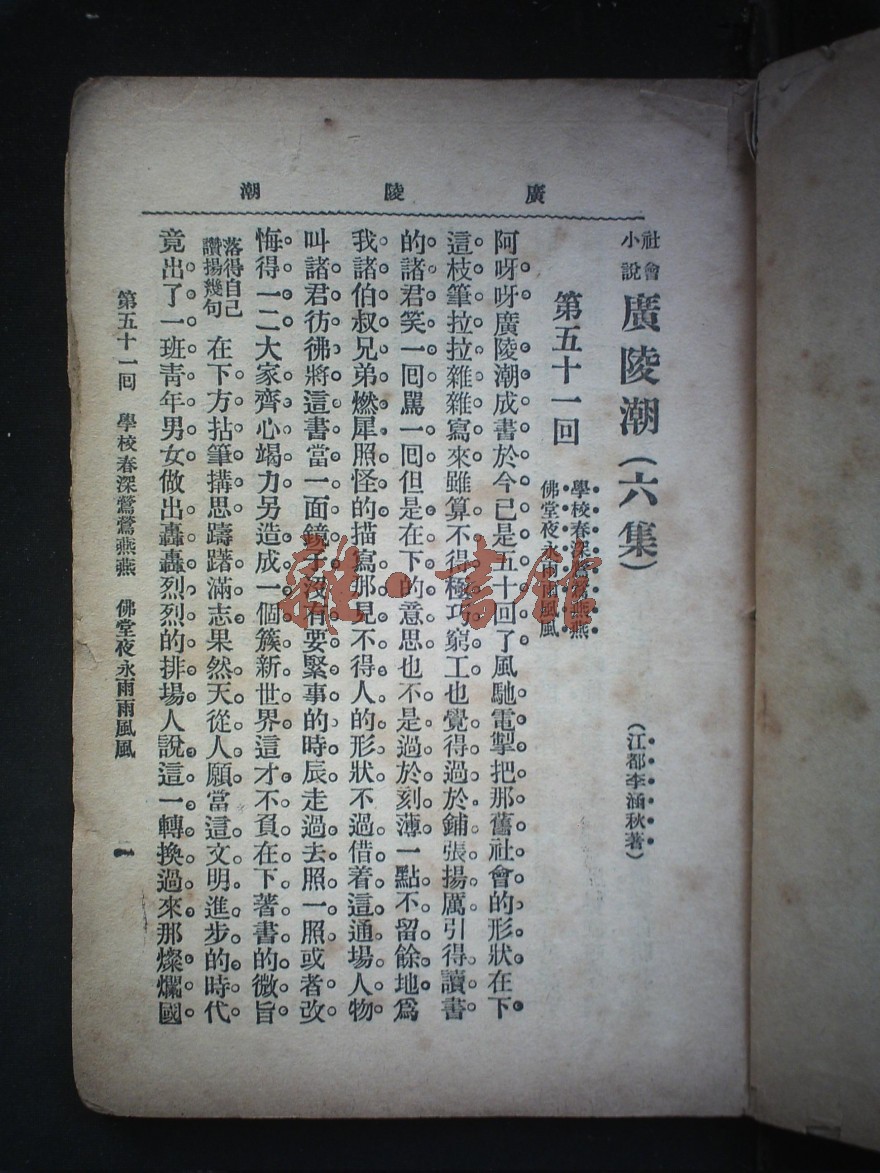 廣陵潮
社會小說 廣陵潮（六集） （江都李涵秋著）
第五十一回 學校春深鶯鶯燕燕 佛堂夜永雨雨風風
阿呀呀廣陵潮成書於今已是五十回了風馳電掣把那舊社會的形狀在下
這枝筆拉拉雜雜寫來雖算不得極巧窮工也覺得過於鋪張揚厲引得讀書
的諸君笑一回罵一回但是在下的意思也不是過於刻薄一點不留餘地爲
我諸伯叔兄弟燃犀照怪的描寫那見不得人的形狀不過借着這通場人物
叫諸君彷彿將這書當一面鏡子沒有要緊事的時辰走過去照一照或者改
悔得一二大家齊心竭力另造成一個簇新世界這才不負在下著書的微旨
落得自己讚揚幾句 在下方拈筆搆思躊躇滿志果然天從人願當這文明進步的時代
竟出了一班靑年男女做出轟轟烈烈的排場人說這一轉換過來那燦爛國
第五十一回 學校春深鶯鶯燕燕 佛堂夜永雨雨風風 一
雜·書館